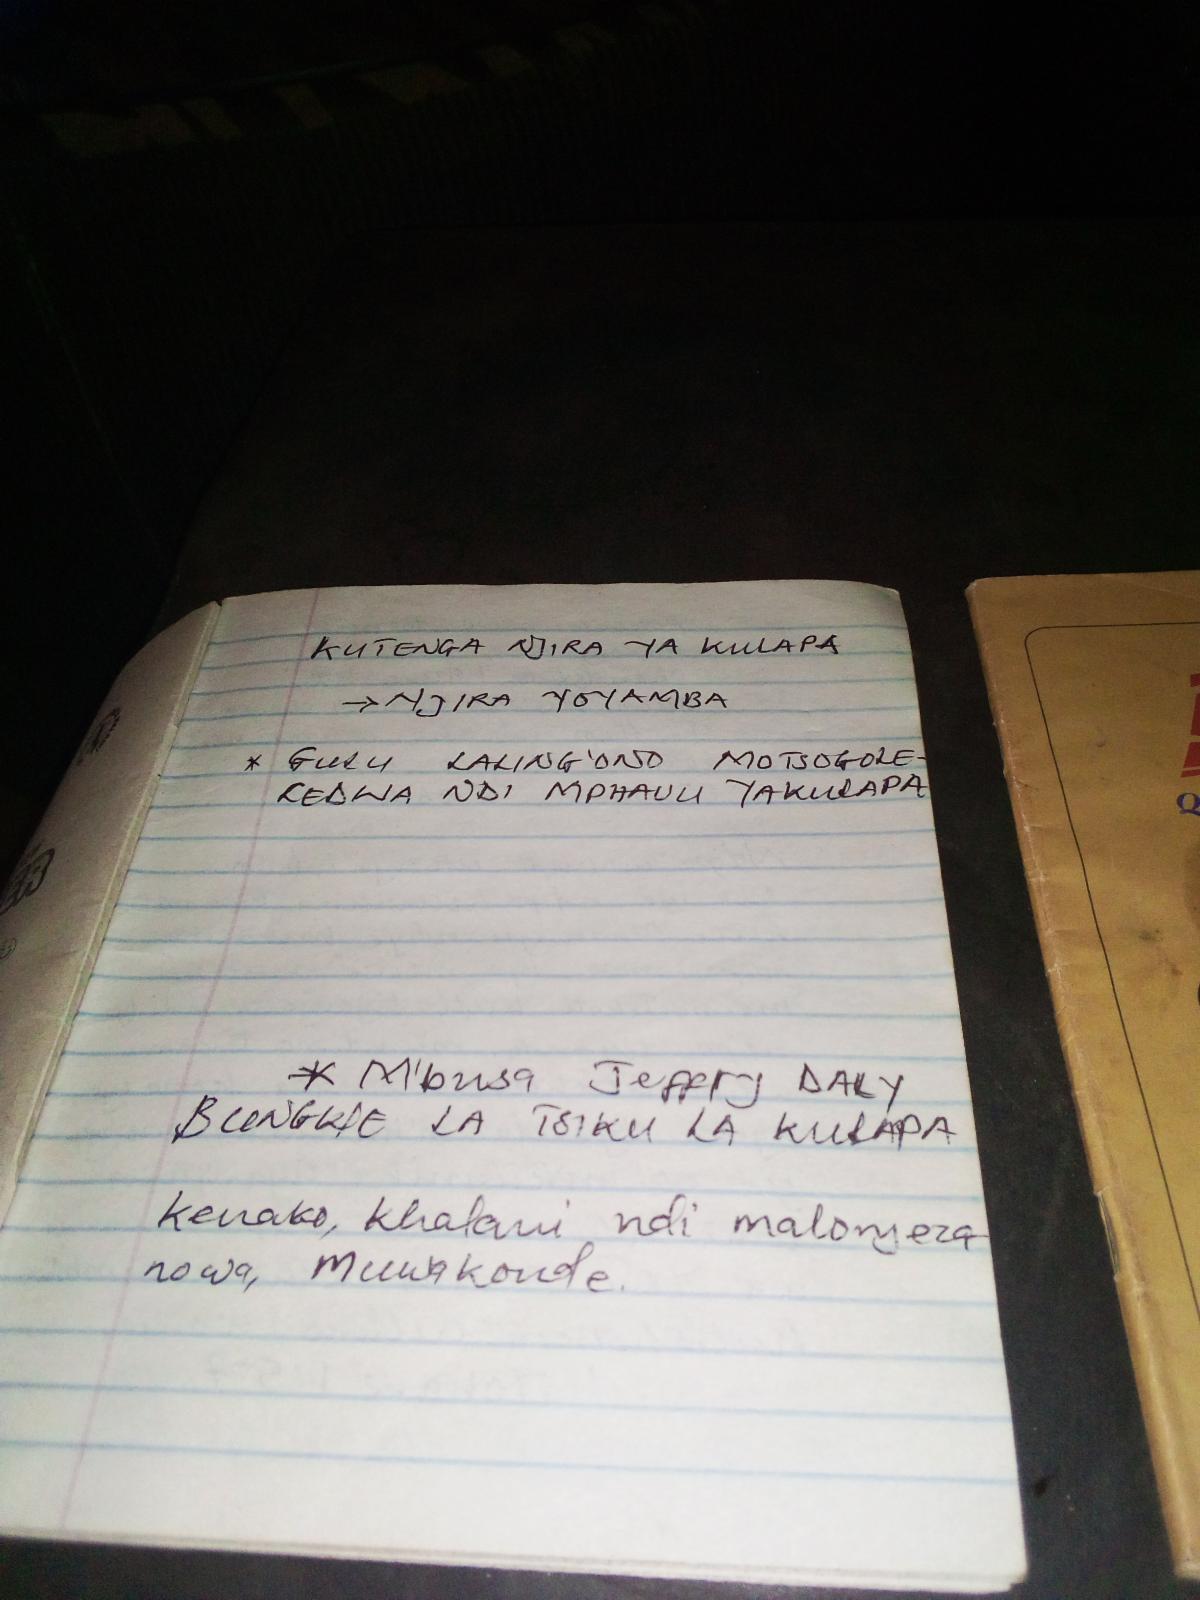 KUTENGA NJIRA YA KULAPA
→ NJIRA YOYAMBA
* GULU LALING'ONO MOTSOGOLE-
REDWA NDI MPHAVU YAKULAPA
* M'busa Jeffrj DALY
BUNGWE LA TSIKU LA KULAPA
kenako, khalani ndi malonjeza
nowa, Muwakonde.
Q